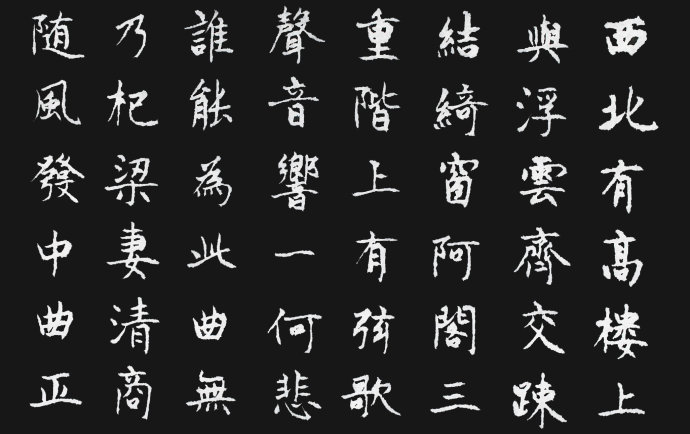 西北有高樓上
與浮雲齊交踈
結綺窗阿閣三
重階上有弦歌
聲音響一何悲
誰能為此曲無
乃杞梁妻清商
随風發中曲正